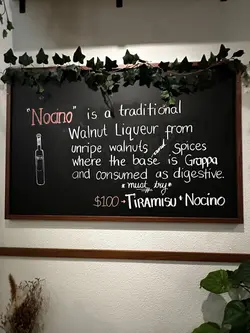 "Nocino" is a traditional
Walnut Liqueur from
unripe walnuts and spices
where the base is Grappa
and consumed as digestive.
*must try*
$100 → TIRAMISU + NOCINO